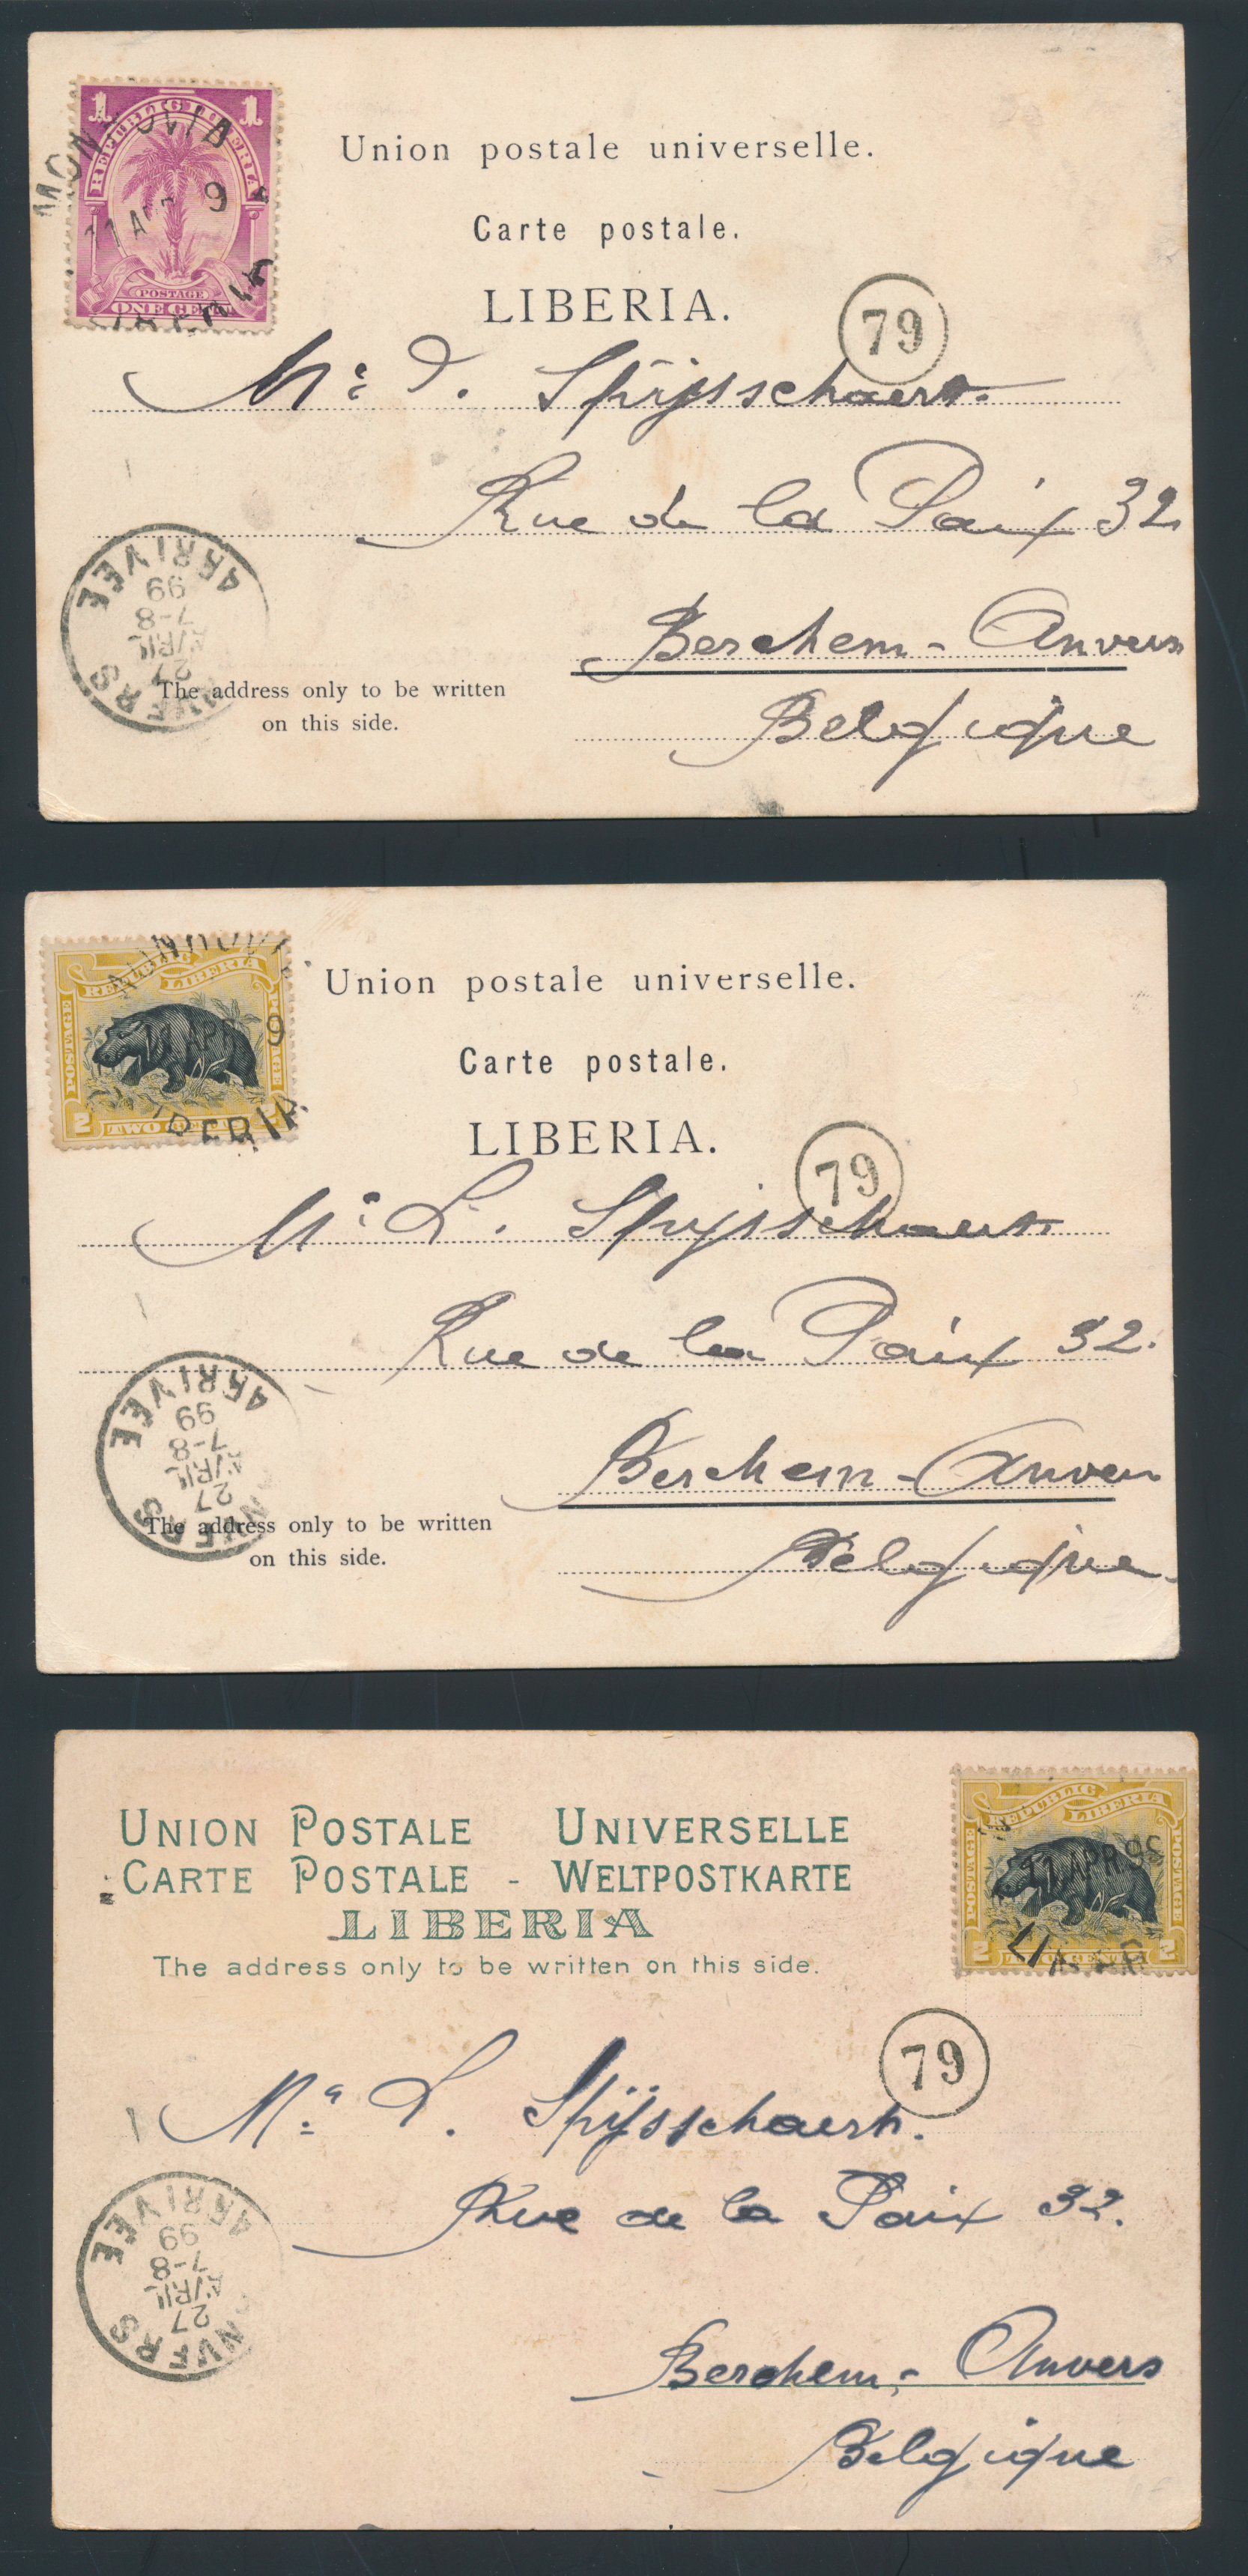 1 REPUBLIC LIBERIA 1
MONROVIA
9
POSTAGE
ONE CENT
Union postale universelle.
Carte postale.
LIBERIA.
79
Mr J. Spijsschaert.
Rue de la Paix 32
Berchem - Anvers
Belgique
ARRIVÉE
99
7-8
AVRIL
27
ANVERS
The address only to be written
on this side.
REPUBLIC LIBERIA
POSTAGE POSTAGE
APR 9
LIBERIA
2 TWO CENTS 2
Union postale universelle.
Carte postale.
LIBERIA.
79
Mr L. Spijsschaert.
Rue de la Paix 32.
Berchem - Anvers
Belgique
ARRIVÉE
99
7-8
AVRIL
27
ANVERS
The address only to be written
on this side.
UNION POSTALE UNIVERSELLE
CARTE POSTALE - WELTPOSTKARTE
LIBERIA
The address only to be written on this side.
REPUBLIC LIBERIA
POSTAGE POSTAGE
APR 9
2 TWO CENTS 2
79
Mr L. Spijsschaert.
Rue de la Paix 32.
Berchem - Anvers
Belgique
ARRIVÉE
99
7-8
AVRIL
27
ANVERS